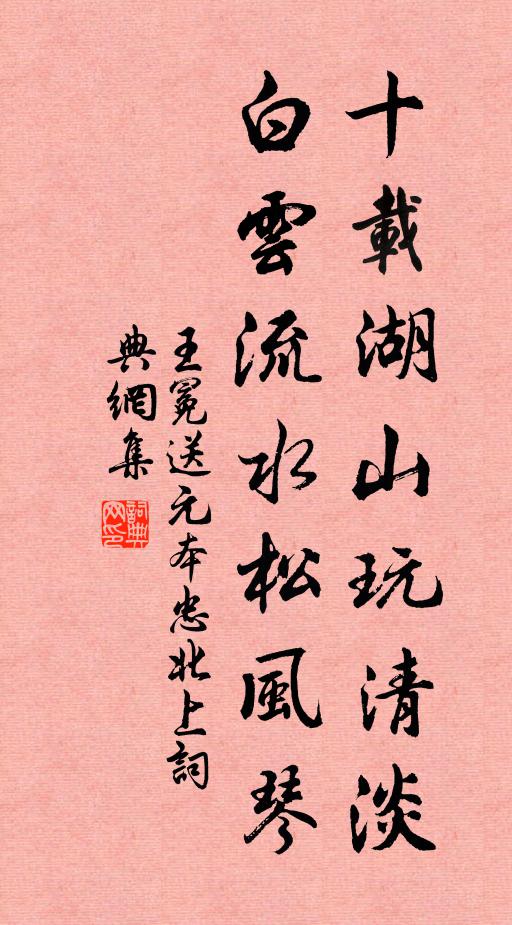 十載湖山玩清淡
白雲流水松風琴
王冕送元本忠北上詞
典網集
詞典
网印